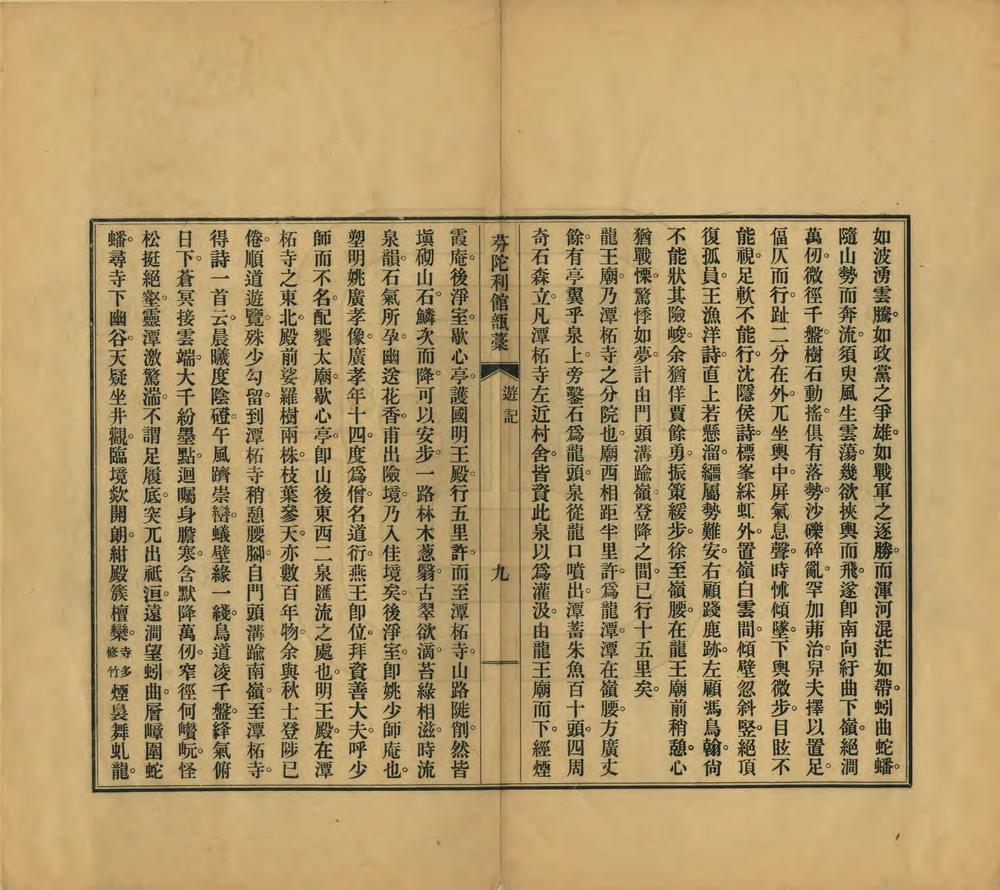 如波湧雲騰。如政黨之爭雄。如戰軍之逐勝。而渾河混茫如帶。蚓曲蛇蟠。
隨山勢而奔流。須臾風生雲蕩。幾欲挾輿而飛。遂卽南向紆曲下嶺。絕澗
萬仞。微徑千盤。樹石動搖。俱有落勢。沙礫碎亂。罕加茀治。舁夫擇以置足。
傴仄而行。趾二分在外。兀坐輿中。屛氣息聲。時怵傾墜。下輿微步。目眩不
能視。足軟不能行。沈隱侯詩。標峯綵虹外。置嶺白雲間。傾壁忽斜竪。絕頂
復孤員。王漁洋詩。直上若懸溜。繼屬勢難安。右顧踐鹿跡。左顧馮鳥翰。尙
不能狀其險峻。余猶佯賈餘勇。振策緩步。徐至嶺腰。在龍王廟前稍憩。心
猶戰慄。驚悸如夢。計由門頭溝踰嶺。登降之間。已行十五里矣。
龍王廟。乃潭柘寺之分院也。廟西相距半里許。爲龍潭。潭在嶺腰。方廣丈
餘。有亭翼乎泉上。旁鑿石爲龍頭。泉從龍口噴出。潭蓄朱魚百十頭。四周
奇石森立。凡潭柘寺左近村舍。皆資此泉以爲灌汲。由龍王廟而下。經煙
芬陀利館瓿藁　遊記　九
霞庵。後淨室。歇心亭。護國明王殿。行五里許。而至潭柘寺。山路陡削。然皆
塡砌山石。鱗次而降。可以安步。一路林木蔥翳。古翠欲滴。苔綠相滋。時流
泉韻。石氣所孕。幽送花香。甫出險境。乃入佳境矣。後淨室。卽姚少師庵也。
塑明姚廣孝像。廣孝年十四。度爲僧。名道衍。燕王卽位。拜資善大夫。呼少
師而不名。配饗太廟。歇心亭。卽山後東西二泉匯流之處也。明王殿。在潭
柘寺之東北。殿前娑羅樹兩株。枝葉參天。亦數百年物。余與秋士登陟已
倦。順道遊覽。殊少勾留。到潭柘寺稍憩腰腳。自門頭溝踰南嶺。至潭柘寺。
得詩一首。云。晨曦度陰磴。午風躋崇巒。蟻壁緣一綫。鳥道凌千盤。絳氣俯
日下。蒼冥接雲端。大千紛墨點。迴矚身膽寒。含默降萬仞。窄徑何巑岏。怪
松挺絕壑。靈潭激驚湍。不謂足履底。突兀出祗洹。遠澗望蚓曲。層嶂圍蛇
蟠。尋寺下幽谷。天疑坐井觀。臨境欻開朗。紺殿簇檀欒。寺多修竹煙裊舞虬龍。